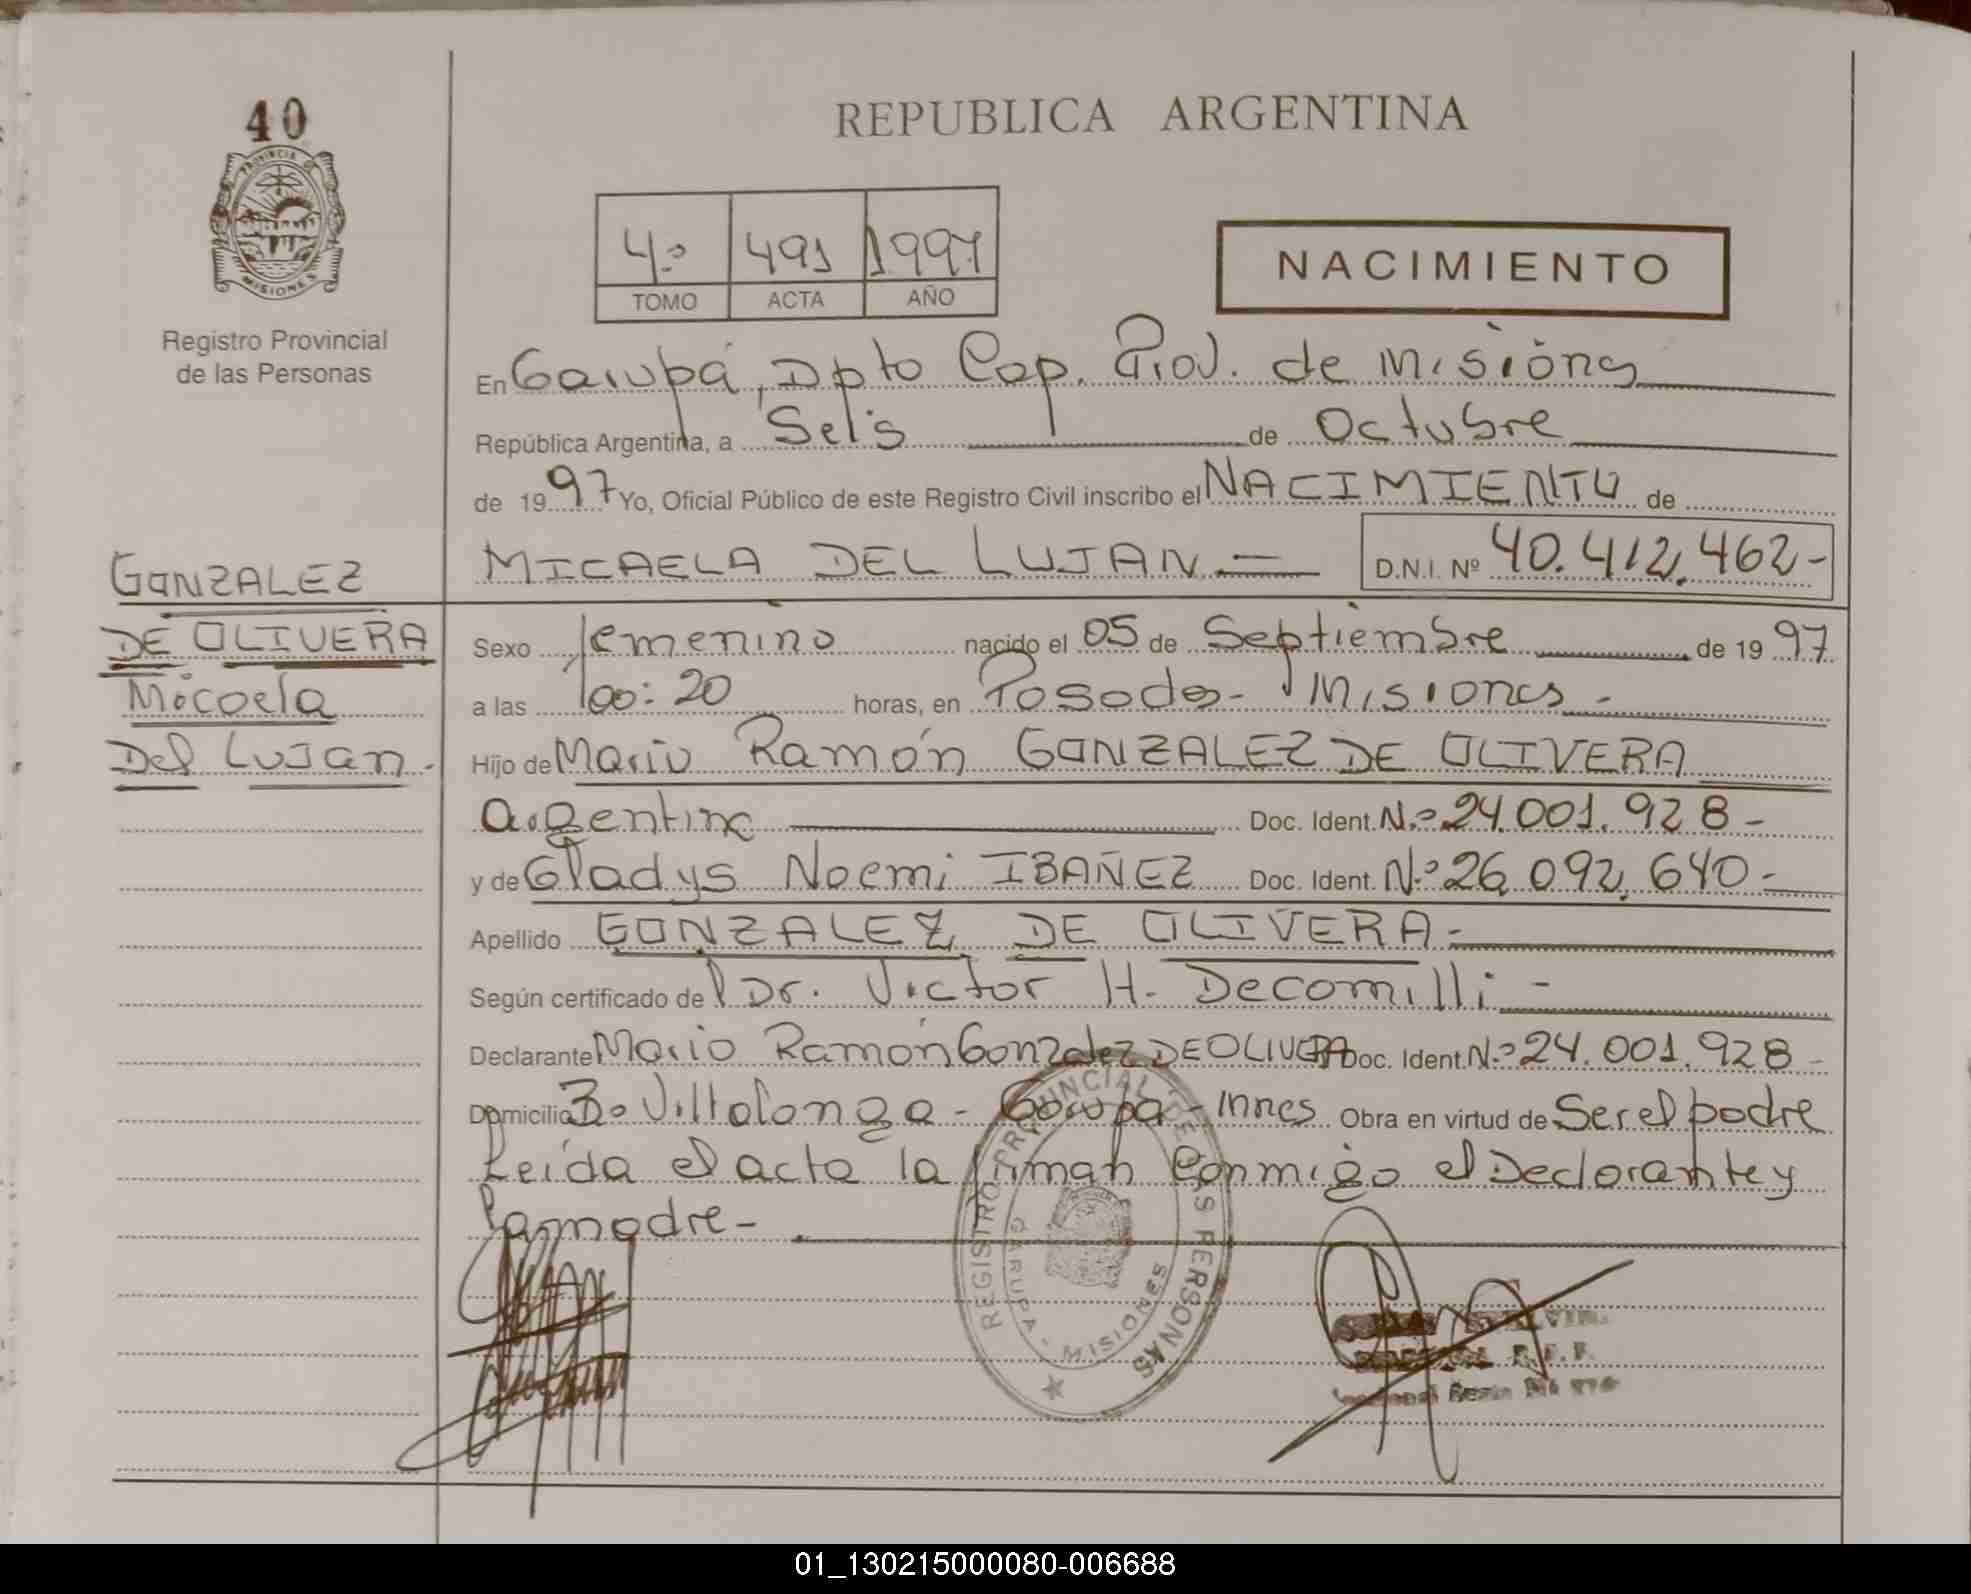 40
PROVINCIA DE
MISIONES
Registro Provincial
de las Personas
REPUBLICA ARGENTINA
4º 491 1997
TOMO ACTA AÑO
NACIMIENTO
En Garupá, Dpto Cap. Prov. de Misiones
República Argentina, a Seis de Octubre
de 1997 Yo, Oficial Público de este Registro Civil inscribo el NACIMIENTO de
MICAELA DEL LUJAN D.N.I. Nº 40.412.462-
GONZALEZ
DE OLIVERA
Micaela
Del Lujan.
Sexo femenino nacido el 05 de Septiembre de 1997
a las 00:20 horas, en Posadas- Misiones-
Hijo de Mario Ramón GONZALEZ DE OLIVERA
Argentina Doc. Ident. N.º 24.001.928-
y de Gladys Noemi IBAÑEZ Doc. Ident. N.º 26.092.640-
Apellido GONZALEZ DE OLIVERA-
Según certificado del Dr. Victor H. Decomilli-
Declarante Mario Ramón Gonzalez DE OLIVERA Doc. Ident. N.º 24.001.928-
Domicilio Bº Villalonga - Garupa - Mnes Obra en virtud de Ser el padre
Leída el acta la firman Conmigo el Declarante y
la madre-
REGISTRO PROVINCIAL DE LAS PERSONAS
GARUPA - MISIONES
01_130215000080-006688